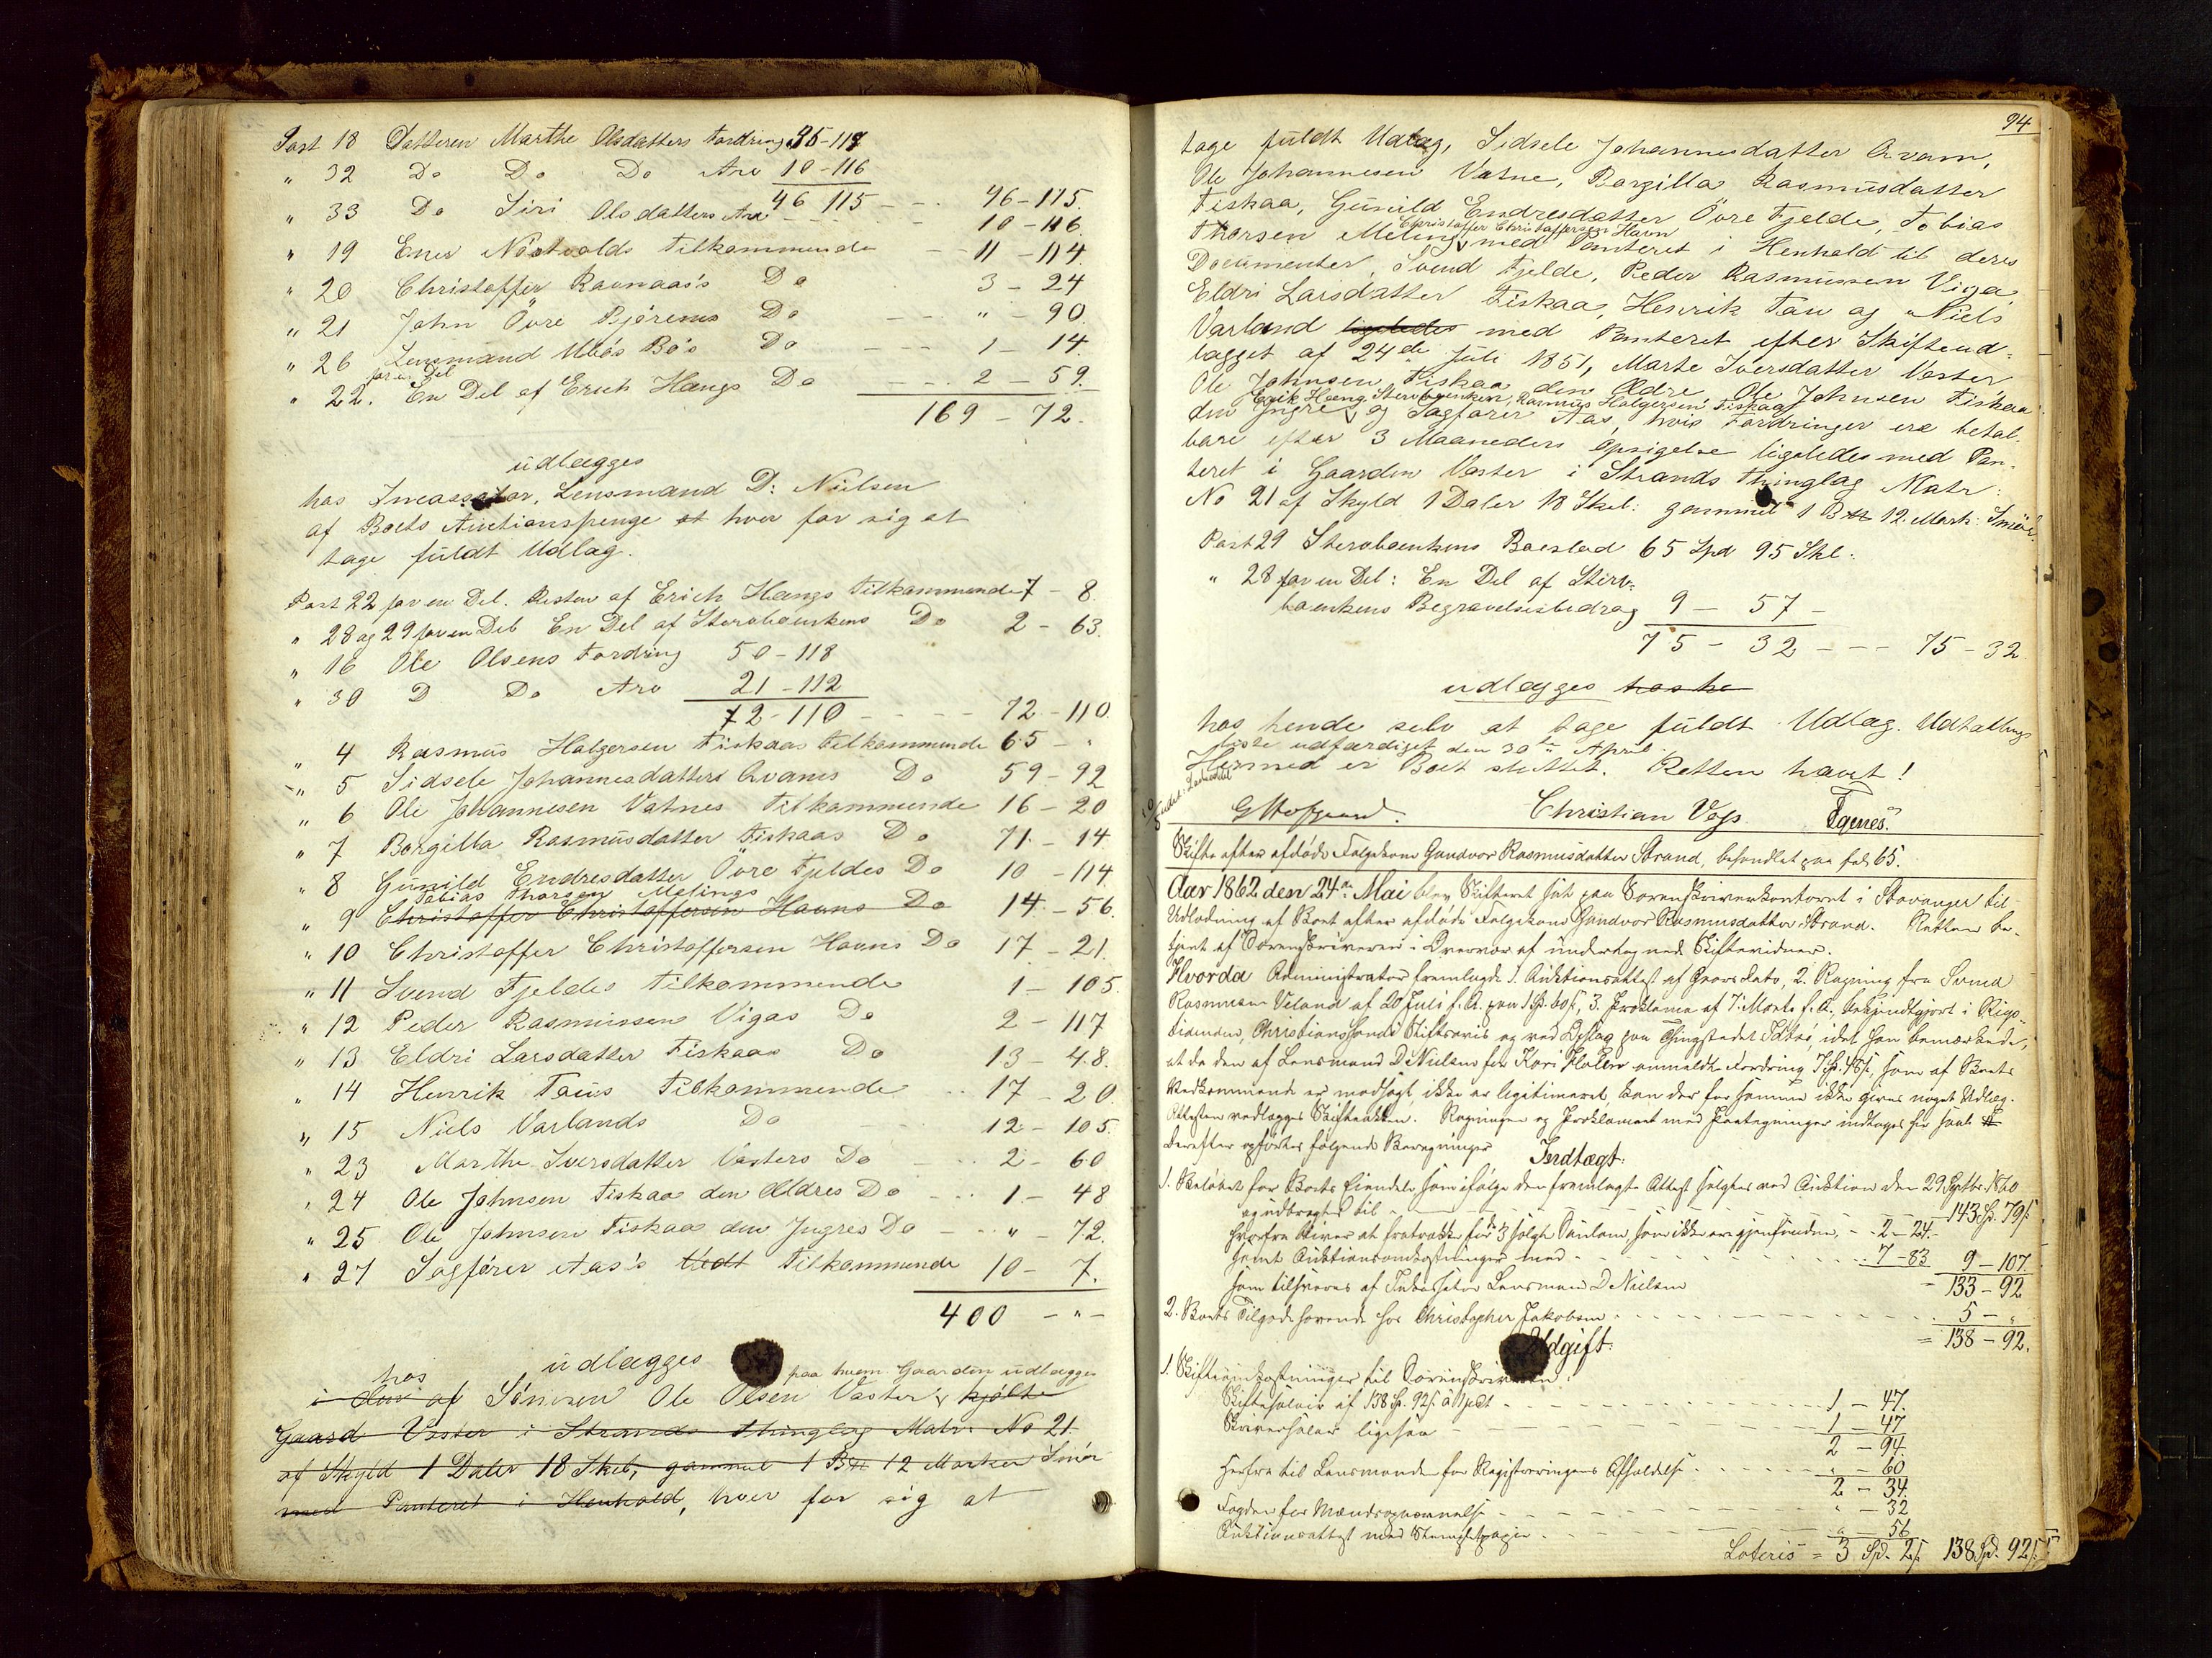 Post 18 Datteren Marthe Olsdatters Fordring 35-119
" 32 Do Do Do Arv 10-116
46 115 - - - 46-115.
" 33 Do Siri Olsdatters Arv - - - 10-116.
" 19 Enes Nöstvolds Tilkommende - - 11-114.
" 20 Christoffer Ravnaas's Do 3-24
" 21 John Övre Björeims Do - - - " - 90.
" 26 Lensmand Bö's Do - - - 1-14.
for en Del
" 22. En Del af Erich Haugs Do - - - 2-59.
169-72.
udlægges
hos Incassator, Lensmand D: Nielsen
af Boets Auctionspenge at hver for sig at
tage fuldt Udlag.
Post 22 for en Del. Resten af Erich Haugs Tilkommende 7-8.
" 28 og 29 for en Del En Del af Stervboenkens Do 2-63.
" 16 Ole Olsens Fordring 50-118
" 30 D Do Arv 21-112
72-110 - - - - 72-110.
" 4 Rasmus Halgersen Fiskaas Tilkommende 65 - "
" 5 Sidsele Johannesdatters Qvams Do 59-92
" 6 Ole Johannesen Vatnes Tilkommende 16-20
" 7 Borgilla Rasmusdatter Fiskaas Do 71-14
" 8 Gunild Endresdatter Övre Fjeldes Do 10-114
Tobias Thorsen Melings
" 9 Christoffer Christoffersen Havns Do 14-56.
" 10 Christoffer Christoffersen Havns Do 17-21.
" 11 Svend Fjeldes Tilkommende 1-105.
" 12 Peder Rasmussen Vigas Do 2-117
" 13 Eldri Larsdatter Fiskaas Do 13-48.
" 14 Henrik Taus Tilkommende 17-20.
" 15 Niels Varlands Do 12-105.
" 23 Marthe Iversdatter Vasters Do 2-60
" 24 Ole Johnsen Fiskaa den Ældres Do - - - 1-48
" 25 Ole Johnsen Fiskaas den Yngres Do - - - " - 72.
" 27 Sagförer Aas's Tilkommende 10-7.
400 - " -
udlægges
hos paa hvem Gaarden udlægges
i af Sönnen Ole Olsen Vaster
Gaard Vaster i Strands Thinglag Matr: No 21.
af Skyld 1 Daler 18 Skil, gammel 1 B 12 Marker Smör
med Panteret i Henhold, hver for sig at
94
tage fuldt Udlag, Sidsele Johannesdatter Qvam,
Ole Johannesen Vatne, Borgilla Rasmusdatter
Fiskaa, Gunild Endresdatter Övre Fjelde, Tobias
Christoffer Christoffersen Havn
Thorsen Meling, med Panteret i Henhold til deres
Documenter, Svend Fjelde, Peder Rasmussen Viga,
Eldri Larsdatter Fiskaa, Henrik Tau og Niels
Varland ligeledes med Panteret efter Skifteud-
lægget af 24de Juli 1851, Marte Iversdatter Vaster
Ole Johnsen Fiskaa den Ældre, Ole Johnsen Fiskaa
Erik Haug, Stervboenken, Rasmus Halgersen Fiskaa
den Yngre, og Sagförer Aas, hvis Fordringer ere betal-
bare efter 3 Maaneders Opsigelse ligeledes med Pan-
teret i Gaarden Vaster i Strands Thinglag Matr:
No 21 af Skyld 1 Daler 18 Skil: gammel 1 B 12 Mark: Smör.
Post 29 Stervboenkens Boeslod 65 Spd 95 Skl:
" 28 for en Del: En Del af Sterv-
boenkens Begravelsesbidrag 9 - 57 -
75 - 32 - - - 75-32
udlægges
hos hende selv at tage fuldt Udlag. Udtallings
liste udfærdiget den 30te April
Hermed er Boet sluttet. Retten hævet!
Christian Vogs Tgenes.
Skifte efter afdöde Folgekone Gundvor Rasmusdatter Strand, behandlet paa fol. 65.
Aar 1862 den 24de Mai blev Skifteret sat paa Sorenskriverkontoret i Stavanger til
Udlodning af Boet efter afdöde Folgekone Gundvor Rasmusdatter Strand. Retten be-
tjent af Sorenskriveren i Overvær af undertegnede Skiftevidner.
Hvorda Administrator fremlagde 1. Auktionsattest af Grovs Dato, 2. Regning fra Svend
Rasmussen Veland af 20 Juli f. A. paa 1 Sp. 60 s, 3. Proklama af 7 Marts f. A., bekjendtgjort i Rigs-
tidenden, Christianssands Stiftsavis og ved Opslag paa Thingstedet idet han bemærkede,
at da den af Lensmand D. Nielsen for Kari anmeldte Fordring 7 Sp. 48 s, som af Boets
Vedkommende er modsagt, ikke er legitimeret, kan der for samme ikke gives noget Udlæg.
Attesten vedlægges Skifteakten. Regningen og Proklamaet med Paategninger indtages her
derefter opførtes følgende Beregninger Indtægt:
1. Beløbet for Boets Eiendele som ifølge den fremlagte Attest solgtes ved Auktion den 29 Septbr. 1860
og udbragtes til - - - 143 Sp. 79 s
hvorfra bliver at fratrække for 3 solgte som ikke ere gjenfundne, - - 2-24.
samt Auktionsomkostninger med - - - 7-83 9-107.
som tilsvares af Inkassator Lensmand D. Nielsen - 133-92
2. Boets Tilgodehavende hos Christopher Jakobsen - - - 5 - "
= 138-92.
Udgift:
1. Skifteomkostninger til Sorenskriveren:
Skiftesalair af 138 Sp. 92 s à 1 pCt - - - 1-47.
Skriversalær ligesaa - - - 1-47
2-94.
herfra til Lensmanden for Registreringens Afholdelse - - - " - 60
2-34.
Fogden for Mændsopnævnelse - - - " - 32
Auktionsattest med Stemplet papir - - - " - 56
Lateris = 3 Sp. 2 s. 138 Sp. 92 s.